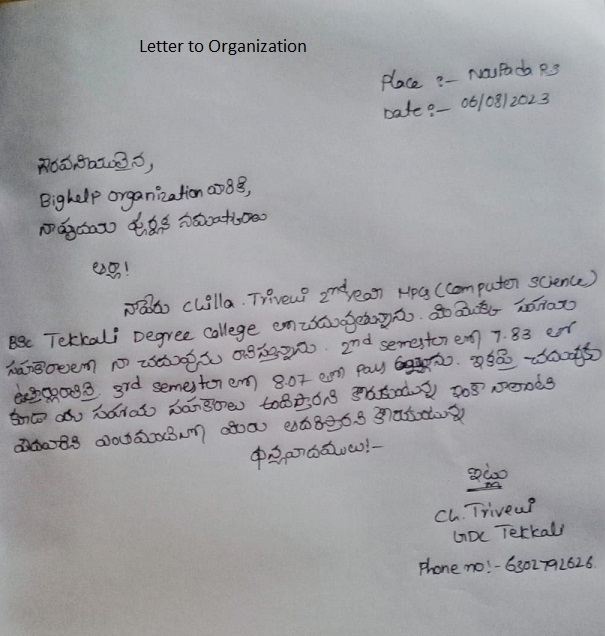 Letter to Organization
Place :- Naupada RS
Date :- 06/08/2023
గౌరవనీయులైన,
Bighelp organization వారికి,
నా హృదయ పూర్వక నమస్కారాలు
అర్యా!
నా పేరు chilla. Triveni 2nd year MPCs (Computer Science)
BSC Tekkali Degree College లో చదువుతున్నాను. మీ యొక్క సహాయ
సహకారాలతో నా చదువును సాగిస్తున్నాను. 2nd semester లో 7.83 తో
3rd semester లో 8.07 తో Pass అయ్యాను. ఇకపై చదువుకు
కూడా మీ సహాయ సహకారాలు అందిస్తారని కోరుకుంటున్న ఇంకా నాలాంటి
పేదవారికి ఎంతమందికో మీరు ఆదరిస్తారని కోరుకుంటున్న
ధన్యవాదములు!-
ఇట్లు
Ch. Triveni
GDC Tekkali
Phone no!- 6302792626